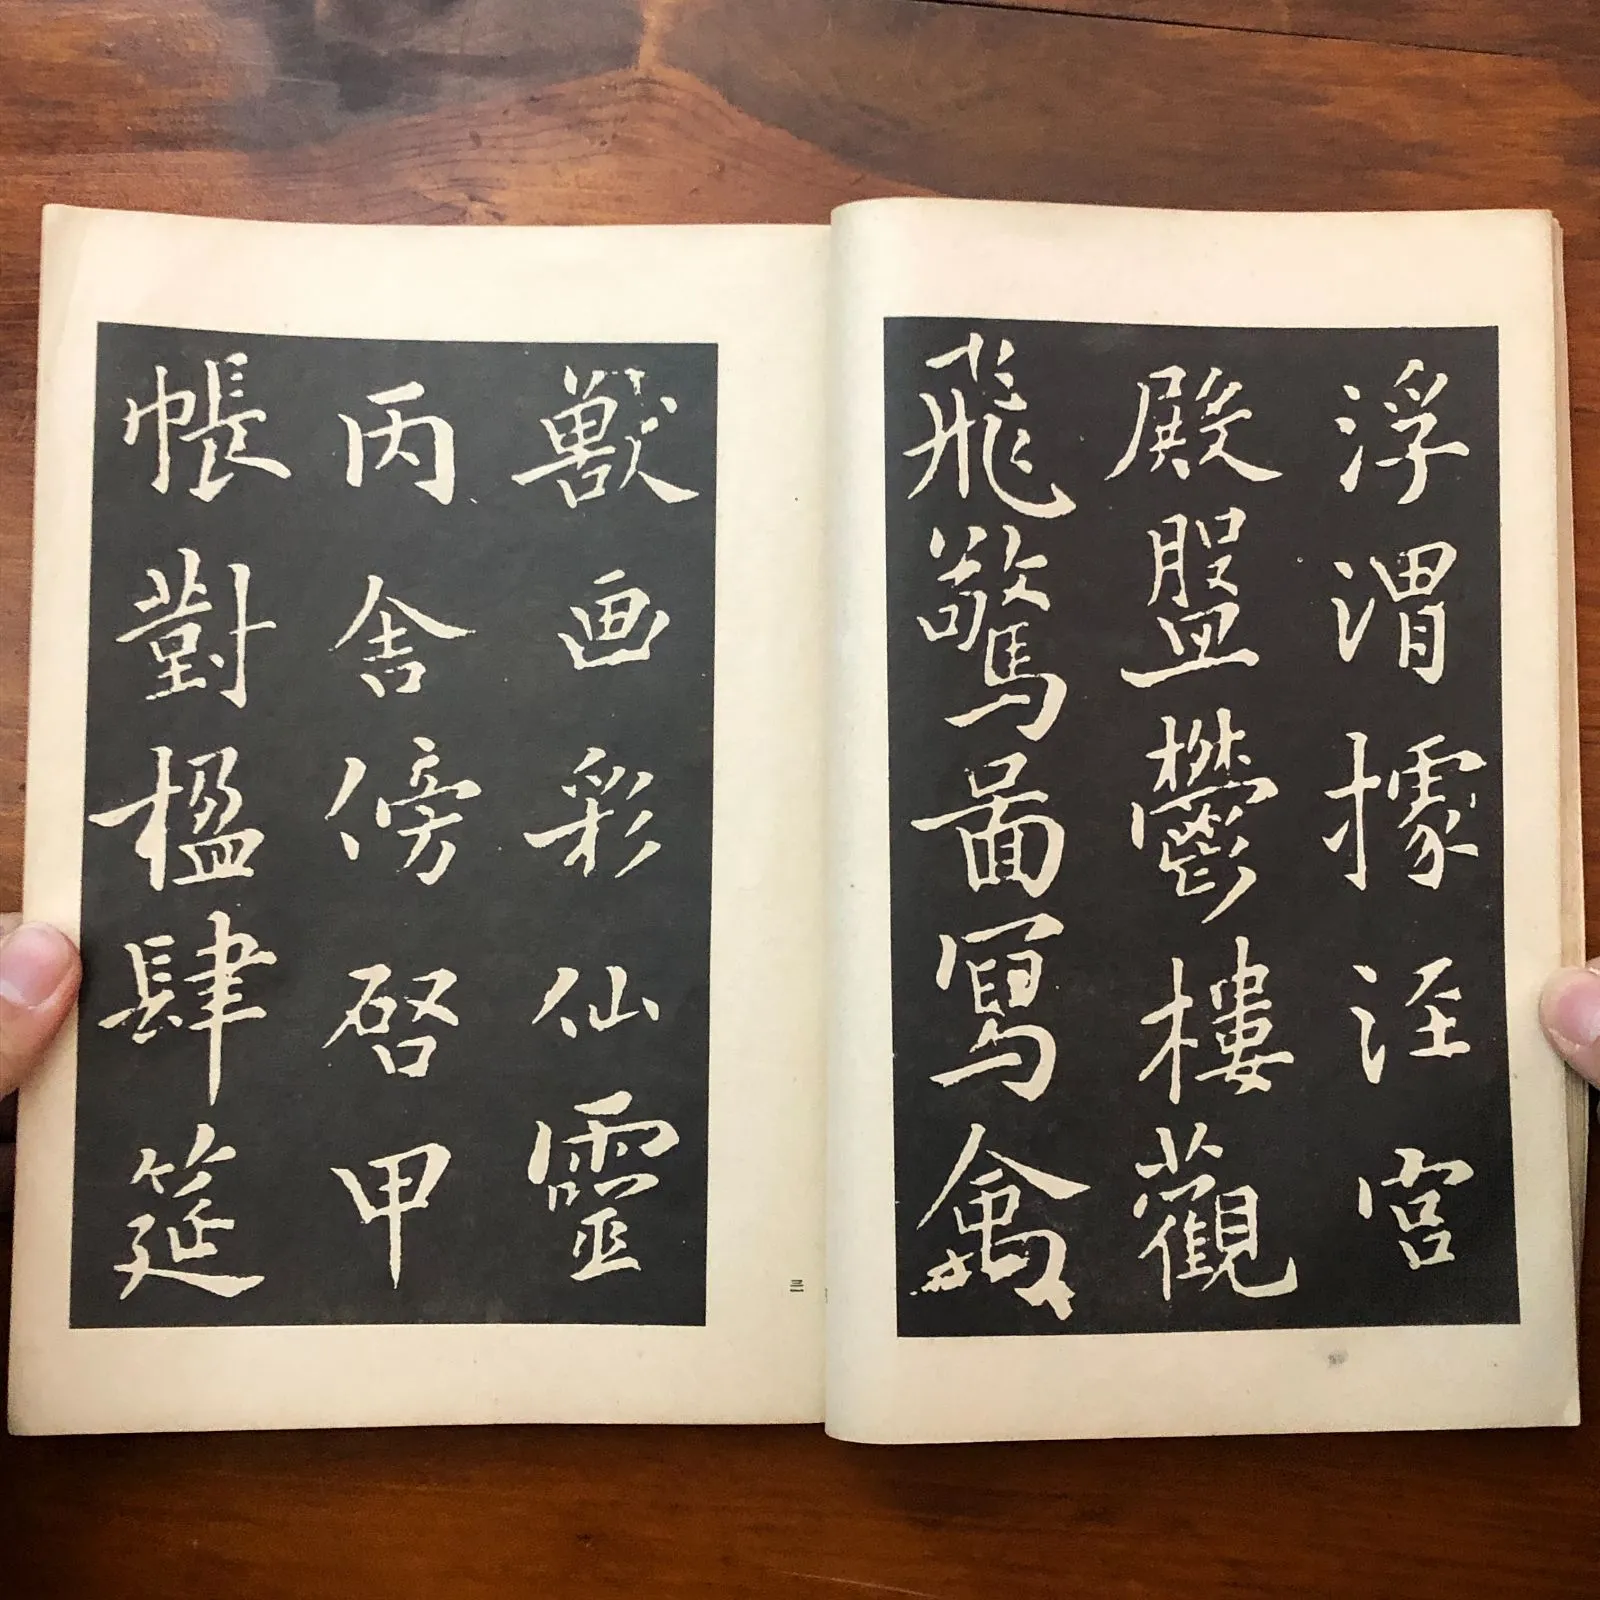 浮渭據泾宫
殿盤鬱樓觀
飛驚圖寫禽
獸画彩仙靈
丙舍傍啓甲
帳對楹肆筵
三